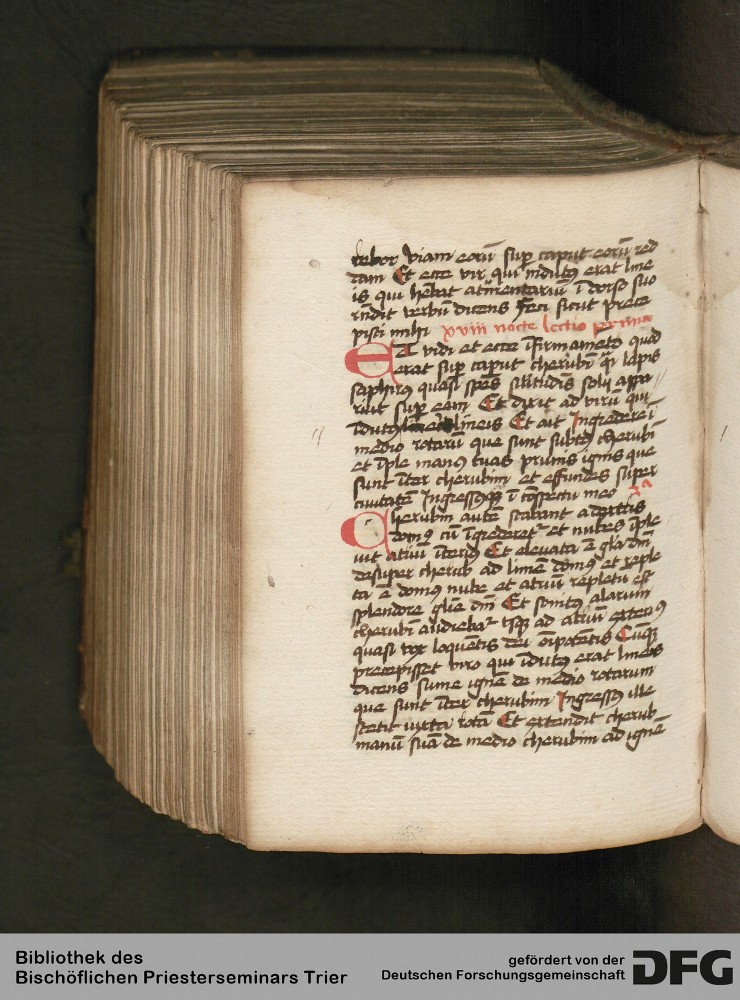 bebor viam eorū sup̄ caput eorū red
dam Et ecce vir qui indutꝰ erat line
is qui hēbat atrm̄entariū ī dorso suo
rn̄dit verbū dicens Feci sicut prece
pisti mihi xviii nocte lectio prima
ET vidi et ecce ī firmamēto quod
erat sup̄ caput cherubī qͣsi lapis
saphirꝰ quasi spēs sil̄itudīs solii appa
ruit sup̄ eam Et dixit ad virū qui
īdutꝰ lineis Et ait Ingredere ī
medio rotarū que sunt subtꝰ cherubī
et īple manꝰ tuas prunis ignis que
sunt īter cherubim et effundes super
ciuitatē Ingressusqꝫ ī cōspectu meo 2a
Cherubin autē stabant a dextris
domꝰ cū īgrederetr̄ et nubes īple
uit atriū īteriꝰ Et eleuata ē glīa dn̄i
desuper cherub ad limē domꝰ et reple
ta ē domꝰ nube et atriū repletū est
splendore glīe dn̄i Et sonitꝰ alarum
cherubī audiebar̄ vsqꝫ ad atriū exteriꝰ
quasi vox loquentis dei oīpotētis Cūqꝫ
precepisset viro qui īdutꝰ erat lineis
dicens sume ignē de medio rotarum
que sunt īter cherubim Ingressꝰ ille
stetit iuxta rotā Et extendit cherub
manū suā de medio cherubim ad ignē
Bibliothek des
Bischöflichen Priesterseminars Trier
gefördert von der
Deutschen Forschungsgemeinschaft
DFG